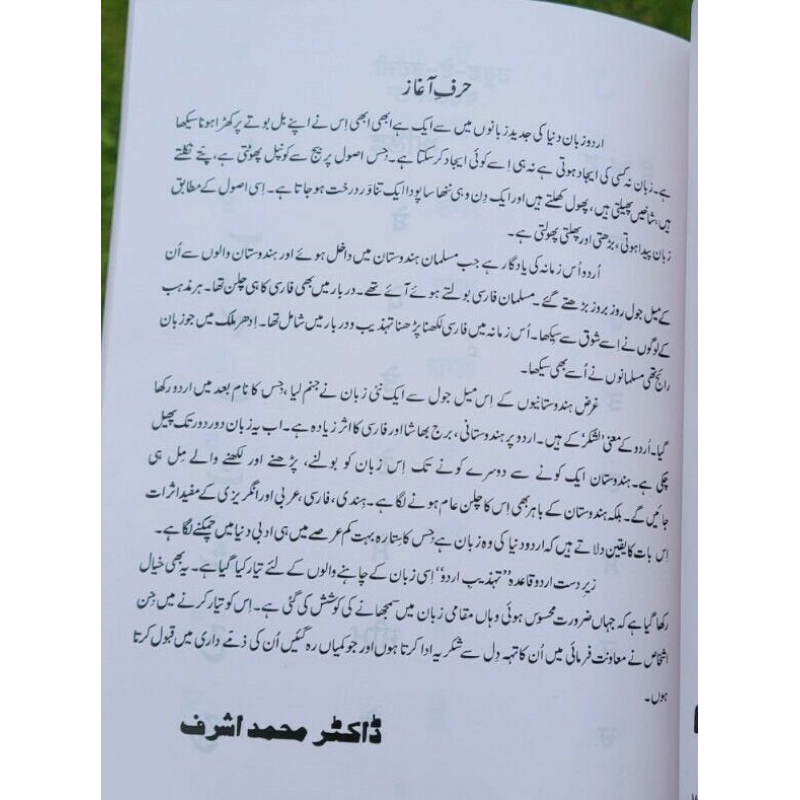 حرفِ آغاز
اردو زبان دنیا کی جدید زبانوں میں سے ایک ہے ابھی ابھی اِس نے اپنے بل بوتے پر کھڑا ہونا سیکھا
ہے۔ زبان نہ کسی کی ایجاد ہوتی ہے نہ ہی اِسے کوئی ایجاد کر سکتا ہے۔ جِس اصول پر بیج سے کونپل پھوٹتی ہے، پتے نکلتے
ہیں، شاخیں پھیلتی ہیں، پھول کھلتے ہیں اور ایک دِن وہی ننھا سا پودا ایک تناور درخت ہو جاتا ہے۔ اِسی اصول کے مطابق
زبان پیدا ہوتی، بڑھتی اور پھلتی پھولتی ہے۔
اُردو اُس زمانہ کی یادگار ہے جب مسلمان ہندوستان میں داخل ہوئے اور ہندوستان والوں سے اُن
کے میل جول روز بروز بڑھتے گئے۔ مسلمان فارسی بولتے ہوئے آئے تھے۔ دربار میں بھی فارسی کا ہی چلن تھا۔ ہر مذہب
کے لوگوں نے اِسے شوق سے سیکھا۔ اُس زمانہ میں فارسی لکھنا پڑھنا تہذیب و دربار میں شامل تھا۔ اِدھر ملک میں جو زبان
رائج تھی مسلمانوں نے اُسے بھی سیکھا۔
غرض ہندوستانیوں کے اِس میل جول سے ایک نئی زبان نے جنم لیا، جِس کا نام بعد میں اردو رکھا
گیا۔ اُردو کے معنی 'لشکر' کے ہیں۔ اردو پر ہندوستانی، برج بھاشا اور فارسی کا اثر زیادہ ہے۔ اب یہ زبان دور دور تک پھیل
چکی ہے۔ ہندوستان ایک کونے سے دوسرے کونے تک اِس زبان کو بولنے، پڑھنے اور لکھنے والے مِل ہی
جائیں گے۔ بلکہ ہندوستان کے باہر بھی اِس کا چلن عام ہونے لگا ہے۔ ہِندی، فارسی، عربی اور انگریزی کے مفید اثرات
اِس بات کا یقین دلاتے ہیں کہ اردو دنیا کی وہ زبان ہے جِس کا ستارہ بہت کم عرصے میں ہی ادبی دنیا میں چمکنے لگا ہے۔
زیرِ دست اردو قاعدہ ''تہذیب اردو'' اِسی زبان کے چاہنے والوں کے لئے تیار کیا گیا ہے۔ یہ بھی خیال
رکھا گیا ہے کہ جہاں ضرورت محسوس ہوئی وہاں مقامی زبان میں سمجھانے کی کوشش کی گئی ہے۔ اِس کو تیار کرنے میں جِن
اشخاص نے معاونت فرمائی میں اُن کا تہہ دِل سے شکریہ ادا کرتا ہوں اور جو کمیاں رہ گئیں اُن کی ذمے داری میں قبول کرتا
ہوں۔
ڈاکٹر محمد اشرف